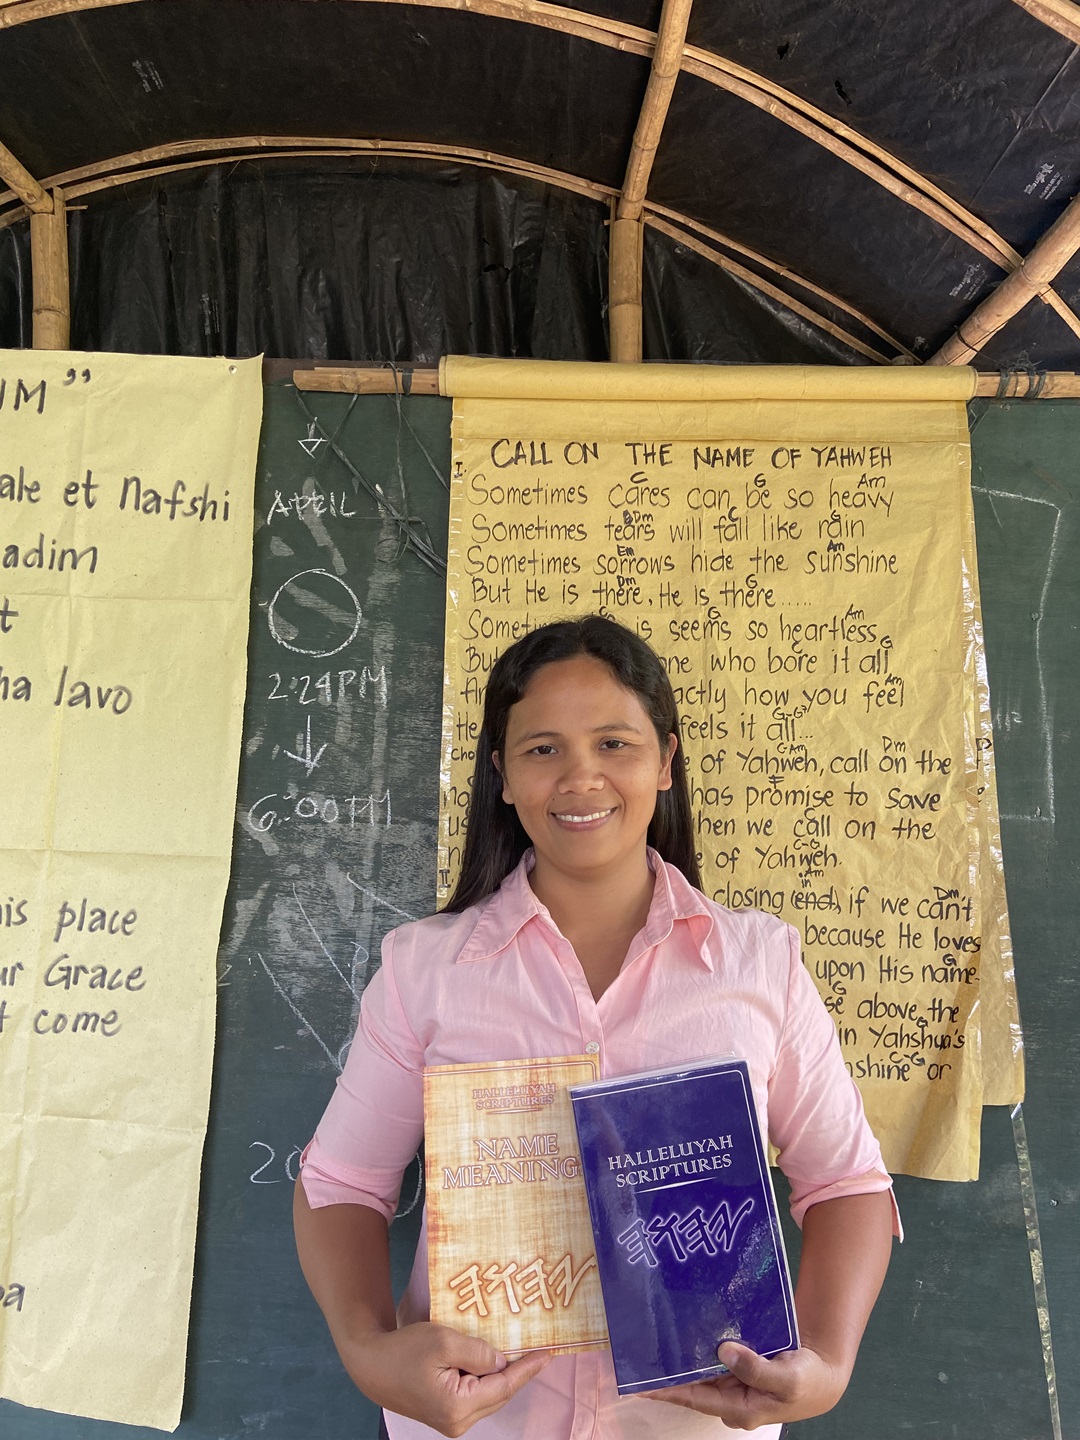 UM”
ale et Nafshi
adim
t
ha lavo
is place
ur Grace
t come
pa
APRIL
2:24PM
6:00PM
20
CALL ON THE NAME OF YAHWEH
I.
C G Am
Sometimes cares can be so heavy
Dm C G
Sometimes tears will fall like rain
Em Am
Sometimes sorrows hide the sunshine
Dm G
But He is there, He is there.....
C G Am
Sometim is seems so heartless
C G
But one who bore it all
Am
An actly how you feel
G-G7
He feels it all...
C-Am Dm
Cho e of Yahweh, call on the
F
na has promise to save
G
us hen we call on the
C-G
n e of Yahweh.
II
in Am Dm
closing (end) if we can't
because He loves
G
upon His name
G
se above the
G
in Yahshua's
C-G
nshine or
HALLELUYAH
SCRIPTURES
NAME
MEANING
𐤉𐤄𐤅𐤄
HALLELUYAH
SCRIPTURES
𐤉𐤄𐤅𐤄